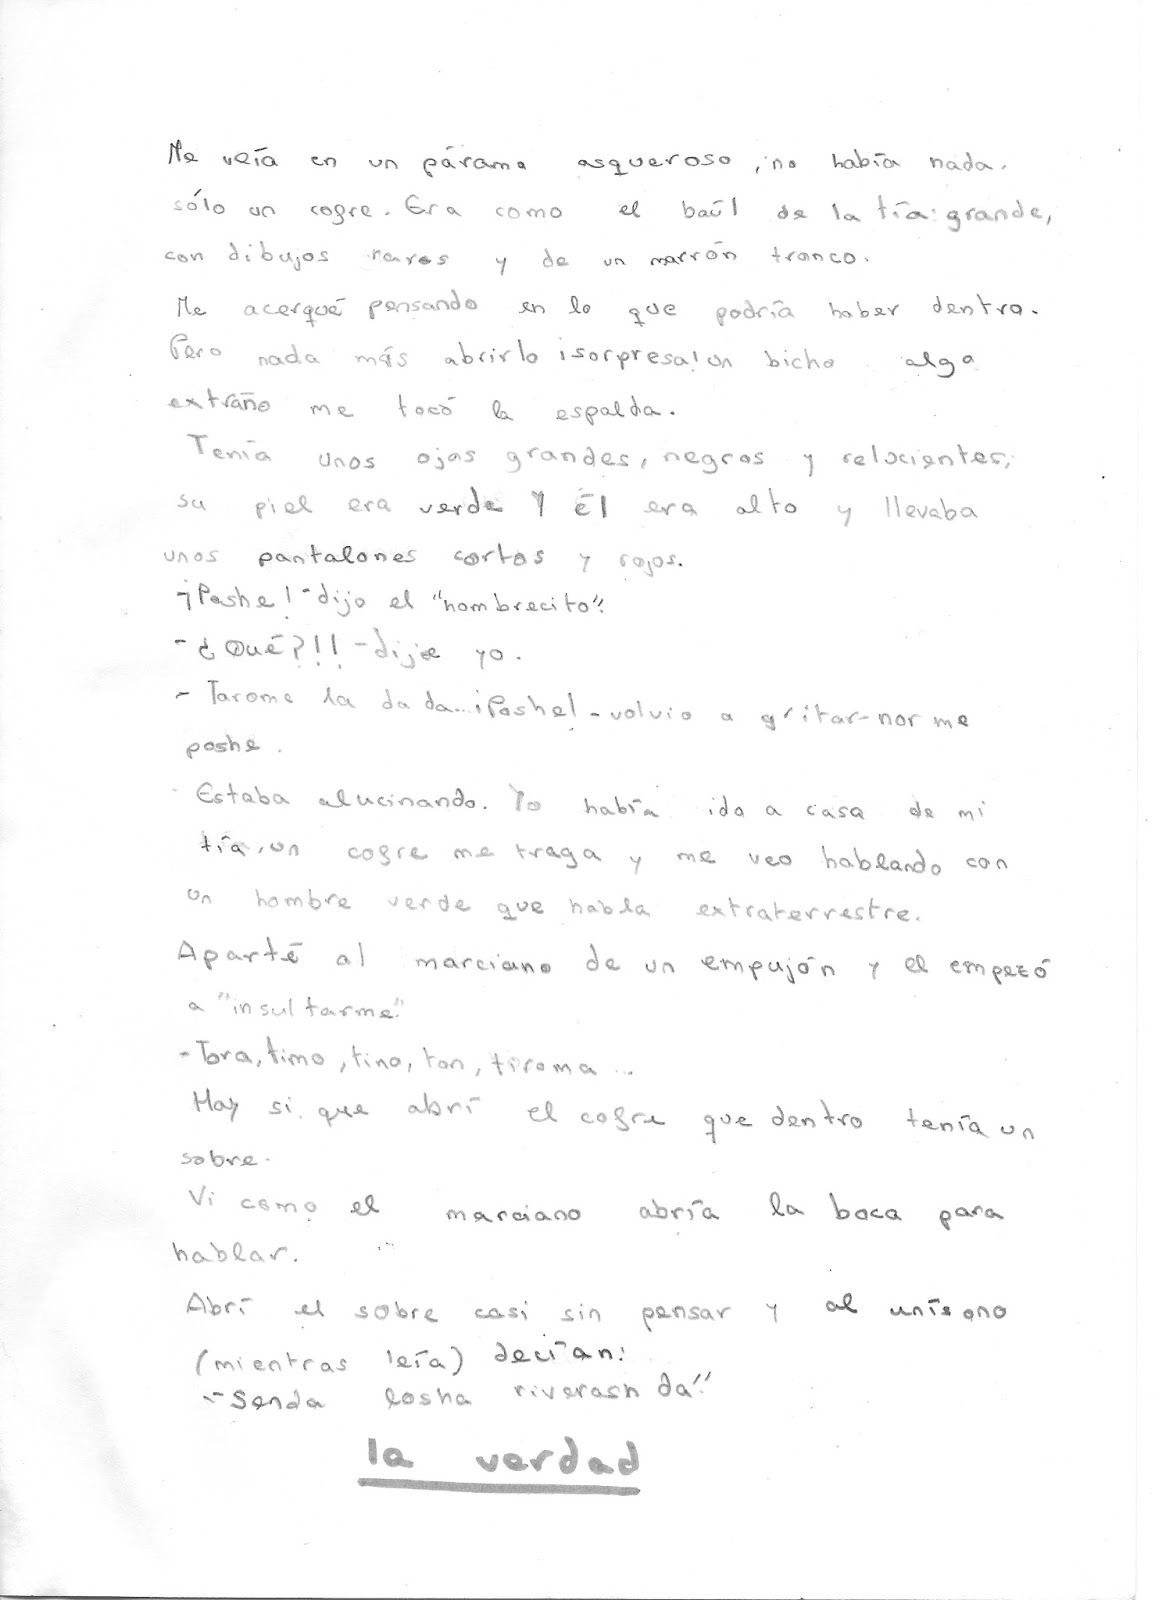 Me veía en un páramo asqueroso, no había nada.
sólo un cofre. Era como el baúl de la tía: grande,
con dibujos raros y de un marrón tronco.
Me acerqué pensando en lo que podría haber dentro.
Pero nada más abrirlo ¡sorpresa! un bicho algo
extraño me tocó la espalda.
Tenía unos ojos grandes, negros y relucientes,
su piel era verde y él era alto y llevaba
unos pantalones cortos y rojos.
-¡Poshe! -dijo el "hombrecito".
- ¿Qué?!!! -dije yo.
- Tarome la da da...¡Poshe! -volvio a gritar-nor me
poshe.
Estaba alucinando. Yo había ido a casa de mi
tía, un cofre me traga y me veo hablando con
un hombre verde que habla extraterrestre.
Aparté al marciano de un empujón y el empezó
a "insultarme".
- Tora, timo, tino, ton, tiroma ...
si que abrí el cofre que dentro tenía un
sobre.
Vi como el marciano abría la boca para
hablar.
Abrí el sobre casi sin pensar y al unísono
(mientras leía) decían:
-Senda losha riverash da"
la verdad